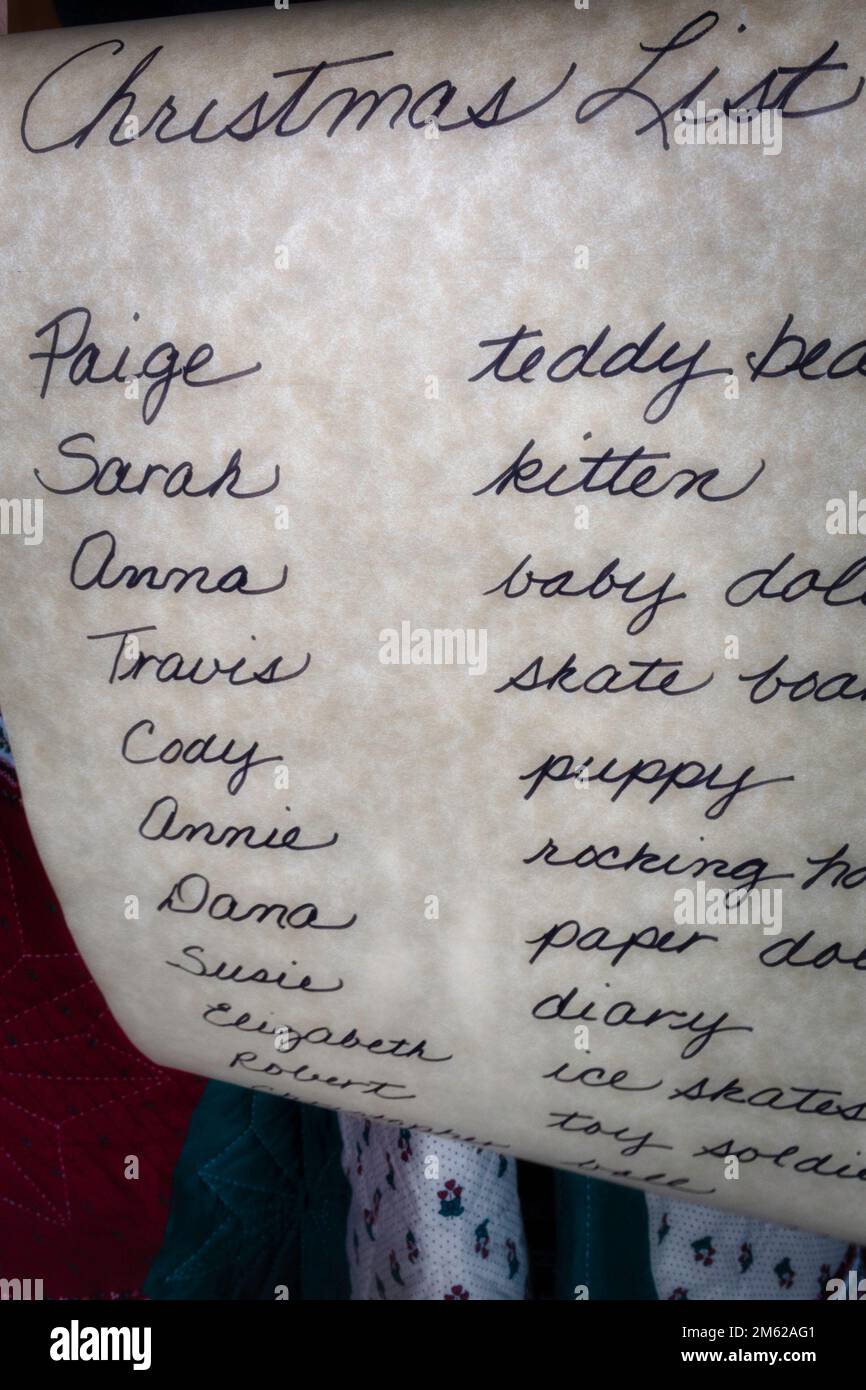 Christmas List
Paige teddy bea
Sarah kitten
Anna baby doll
Travis skate boar
Cody puppy
Annie rocking ho
Dana paper dol
Susie diary
Elizabeth ice skates
Robert toy soldie
alamy
Image ID: 2M62AG1
www.alamy.com